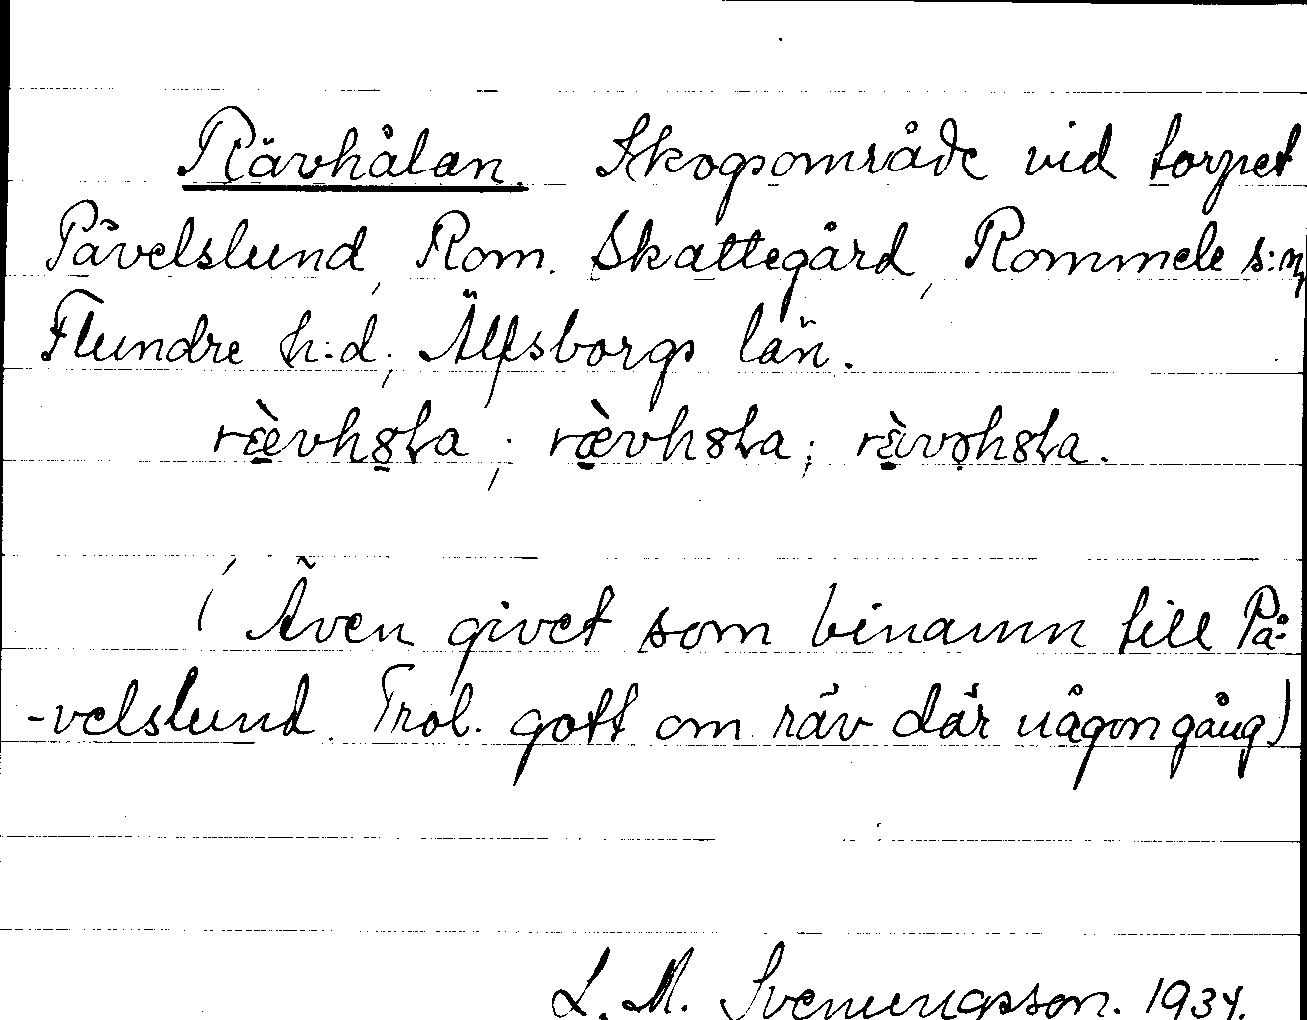 Rävhålan. Skogsområde vid torpet
Påvelslund, Rom. Skattegård, Rommele s:n,
Flundre h:d, Älfsborgs län.
(Även givet som binamn till På-
-velslund. Trol. gott om räv där någon gång)
L. M. Svenungsson. 1934.